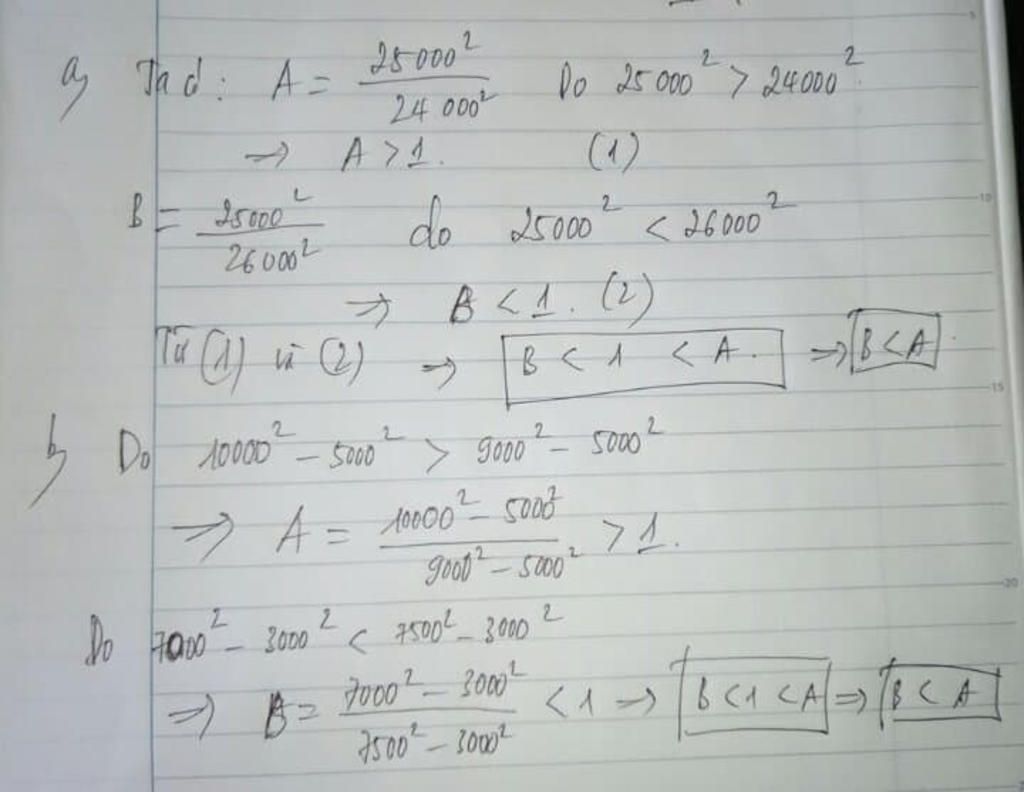 a) Ta có: A = 25000² / 24000² Do 25000² > 24000².
⇒ A > 1. (1)
B = 25000² / 26000² do 25000² < 26000²
⇒ B < 1. (2)
Từ (1) và (2) ⇒ B < 1 < A. ⇒ B < A.
b) Do 10000² - 5000² > 9000² - 5000²
⇒ A = 10000² - 5000² / 9000² - 5000² > 1.
Do 7000² - 3000² < 7500² - 3000²
⇒ B = 7000² - 3000² / 7500² - 3000² < 1 → B < 1 < A ⇒ B < A